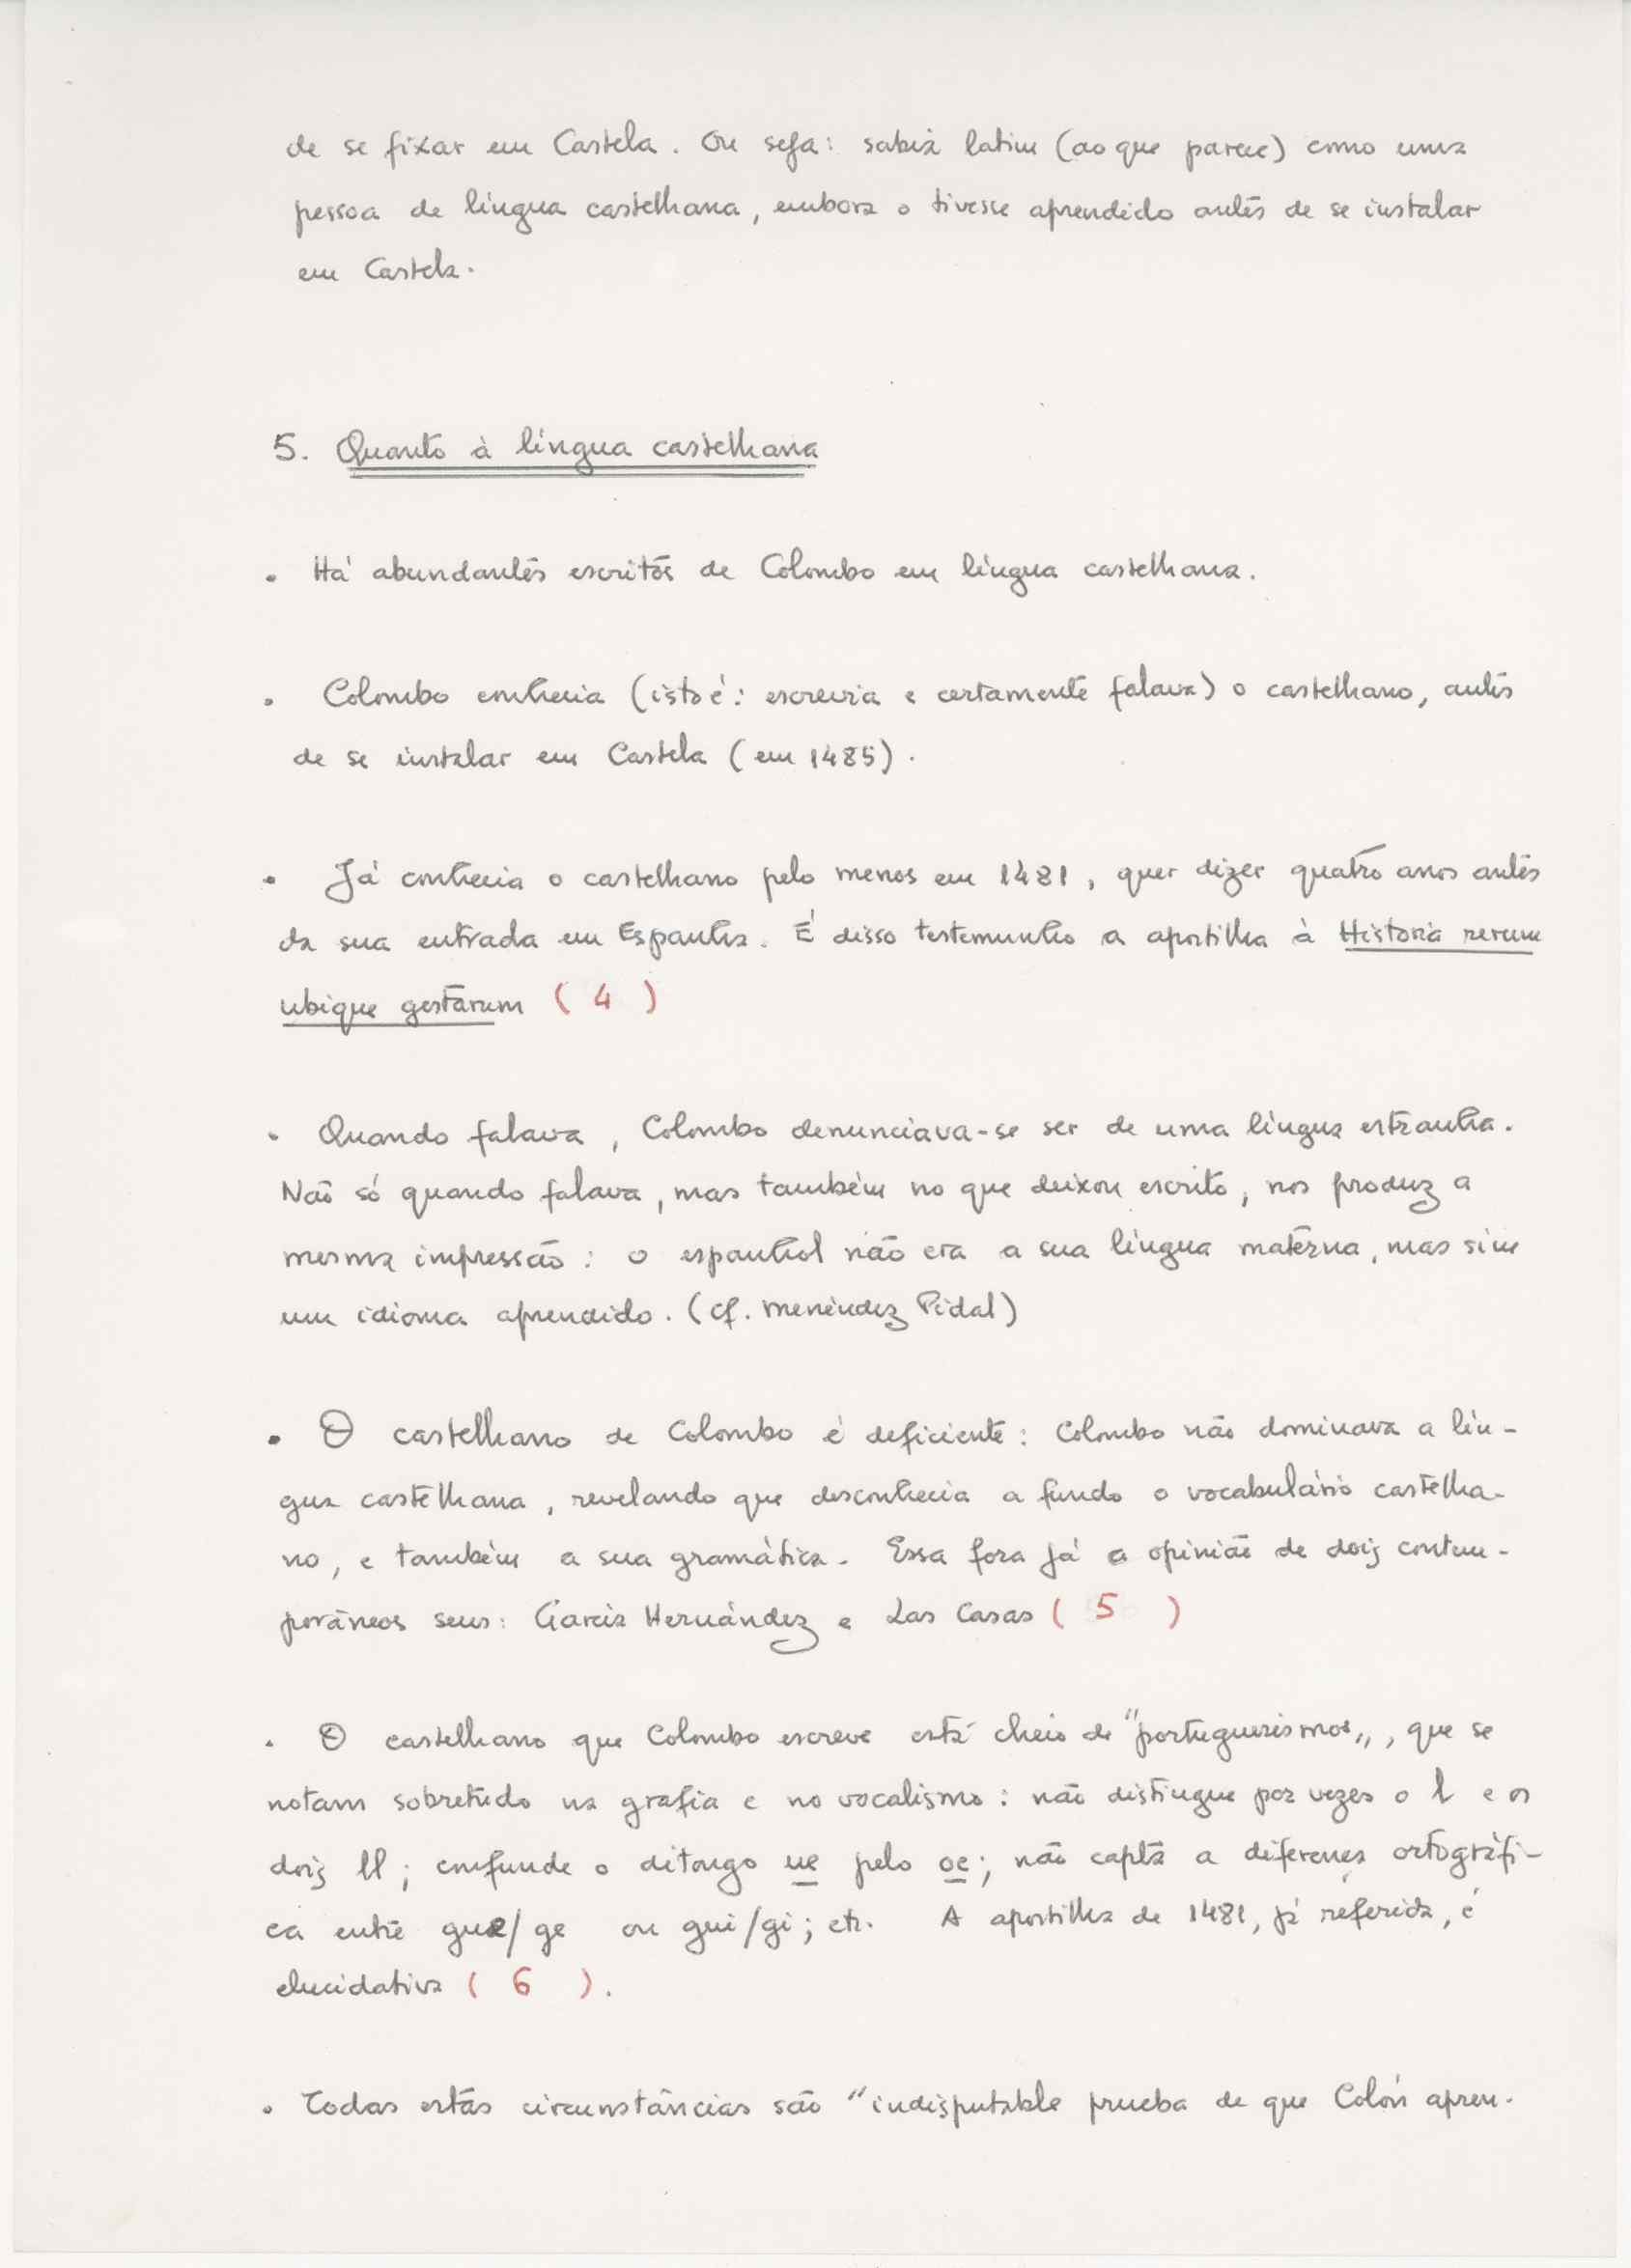 de se fixar em Castela. Ou seja: sabia latim (ao que parece) como uma
pessoa de língua castelhana, embora o tivesse aprendido antes de se instalar
em Castela.
5. Quanto à língua castelhana
• Há abundantes escritos de Colombo em língua castelhana.
• Colombo conhecia (isto é: escrevia e certamente falava) o castelhano, antes
de se instalar em Castela (em 1485).
• Já conhecia o castelhano pelo menos em 1481, quer dizer quatro anos antes
da sua entrada em Espanha. É disso testemunho a apostilha à Historia rerum
ubique gestarum (4)
• Quando falava, Colombo denunciava-se ser de uma língua estranha.
Não só quando falava, mas também no que deixou escrito, nos produz a
mesma impressão: o espanhol não era a sua língua materna, mas sim
um idioma aprendido. (cf. Menéndez Pidal)
• O castelhano de Colombo é deficiente: Colombo não dominava a lín-
gua castelhana, revelando que desconhecia a fundo o vocabulário castelha-
no, e também a sua gramática. Essa fora já a opinião de dois contem-
porâneos seus: García Hernández e Las Casas (5)
• O castelhano que Colombo escreve está cheio de "portuguesismos", que se
notam sobretudo na grafia e no vocalismo: não distingue por vezes o l e os
dois ll; confunde o ditongo ue pelo oe; não capta a diferença ortográfi-
ca entre gue/ge ou gui/gi; etc. A apostilha de 1481, já referida, é
elucidativa (6).
• Todas estas circunstâncias são "indisputable prueba de que Colón apren-